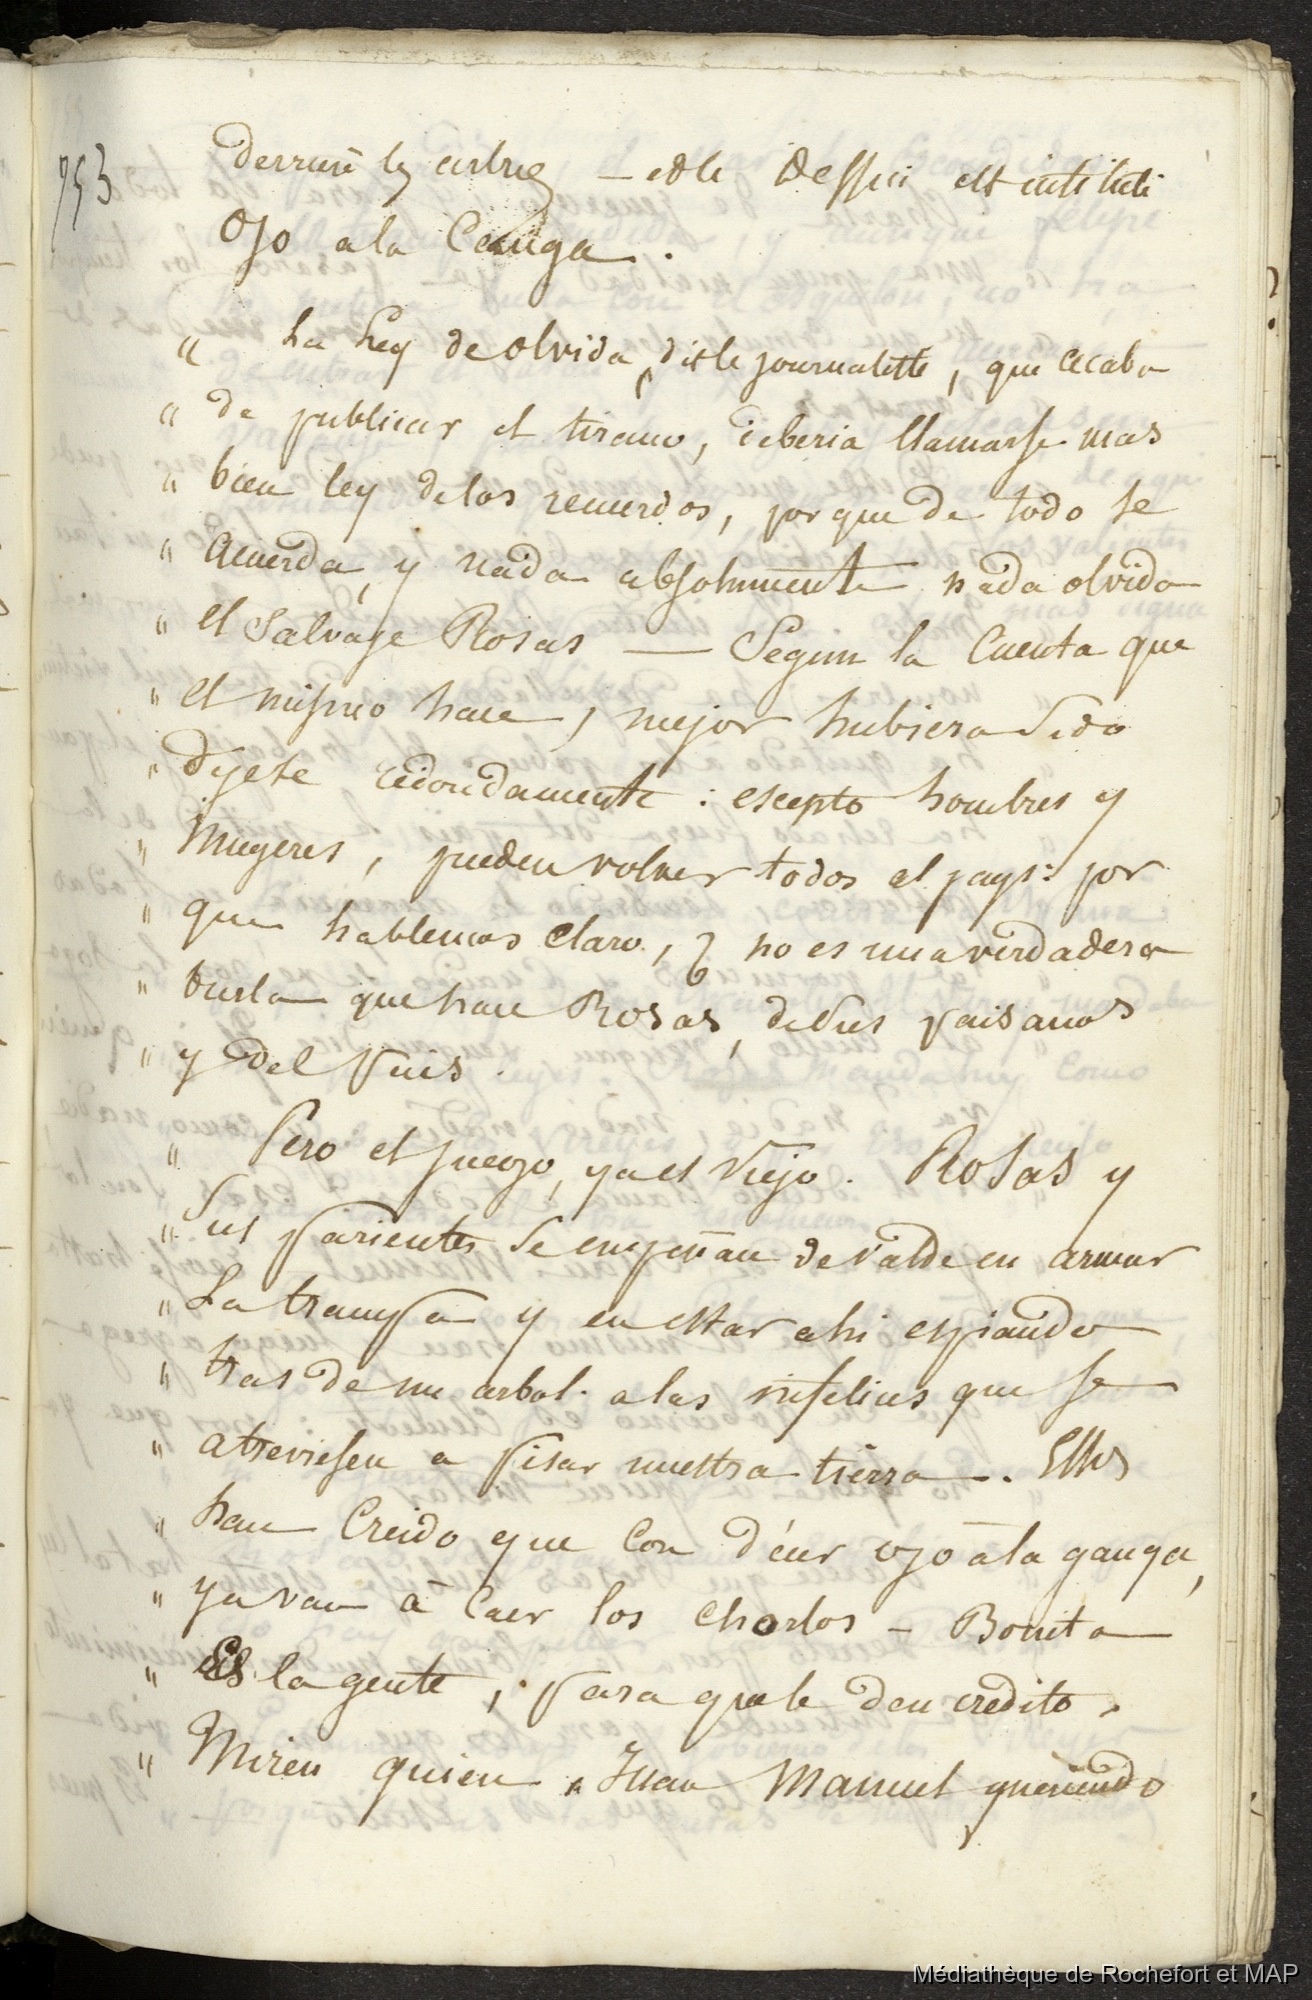 753
derriere les arbres — et le dessin est intitulé
Ojo a la Ganga.
" La Ley de olvido, dit le journaliste, que acaba
" de publicar el tirano, deberia llamarse mas
" bien ley de los recuerdos, por que de todo se
" acuerda, y nada absolumente nada olvida
" el salvage Rosas — Segun la Cuenta que
" el mismo hace, mejor hubiera sido
" dijese redondamente : escepto hombres y
" mugeres, pueden volver todos al pays : por
" que hablemos claro, ¿ no es una verdadera
" burla que hace Rosas, de sus paisanos
" y del Pais.
" Pero el juego, ya es viejo. Rosas y
" Sus parientes se empeñan de valde en armar
" La trampa y en estar ahi espiando
" tras de un arbol. a las infelices que se
" atreviesen a pisar nuestra tierra. Ellos
" han Creido que Con décir ojo à la ganga,
" ya van à Caer los Chorlos — Bonita
" Es la gente, para que le den credito.
" Miren quien, Juan Manuel queriendo
Médiathèque de Rochefort et MAP